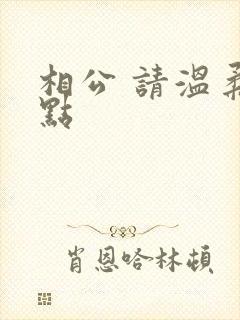 相公 請溫柔
點
肖恩哈林頓